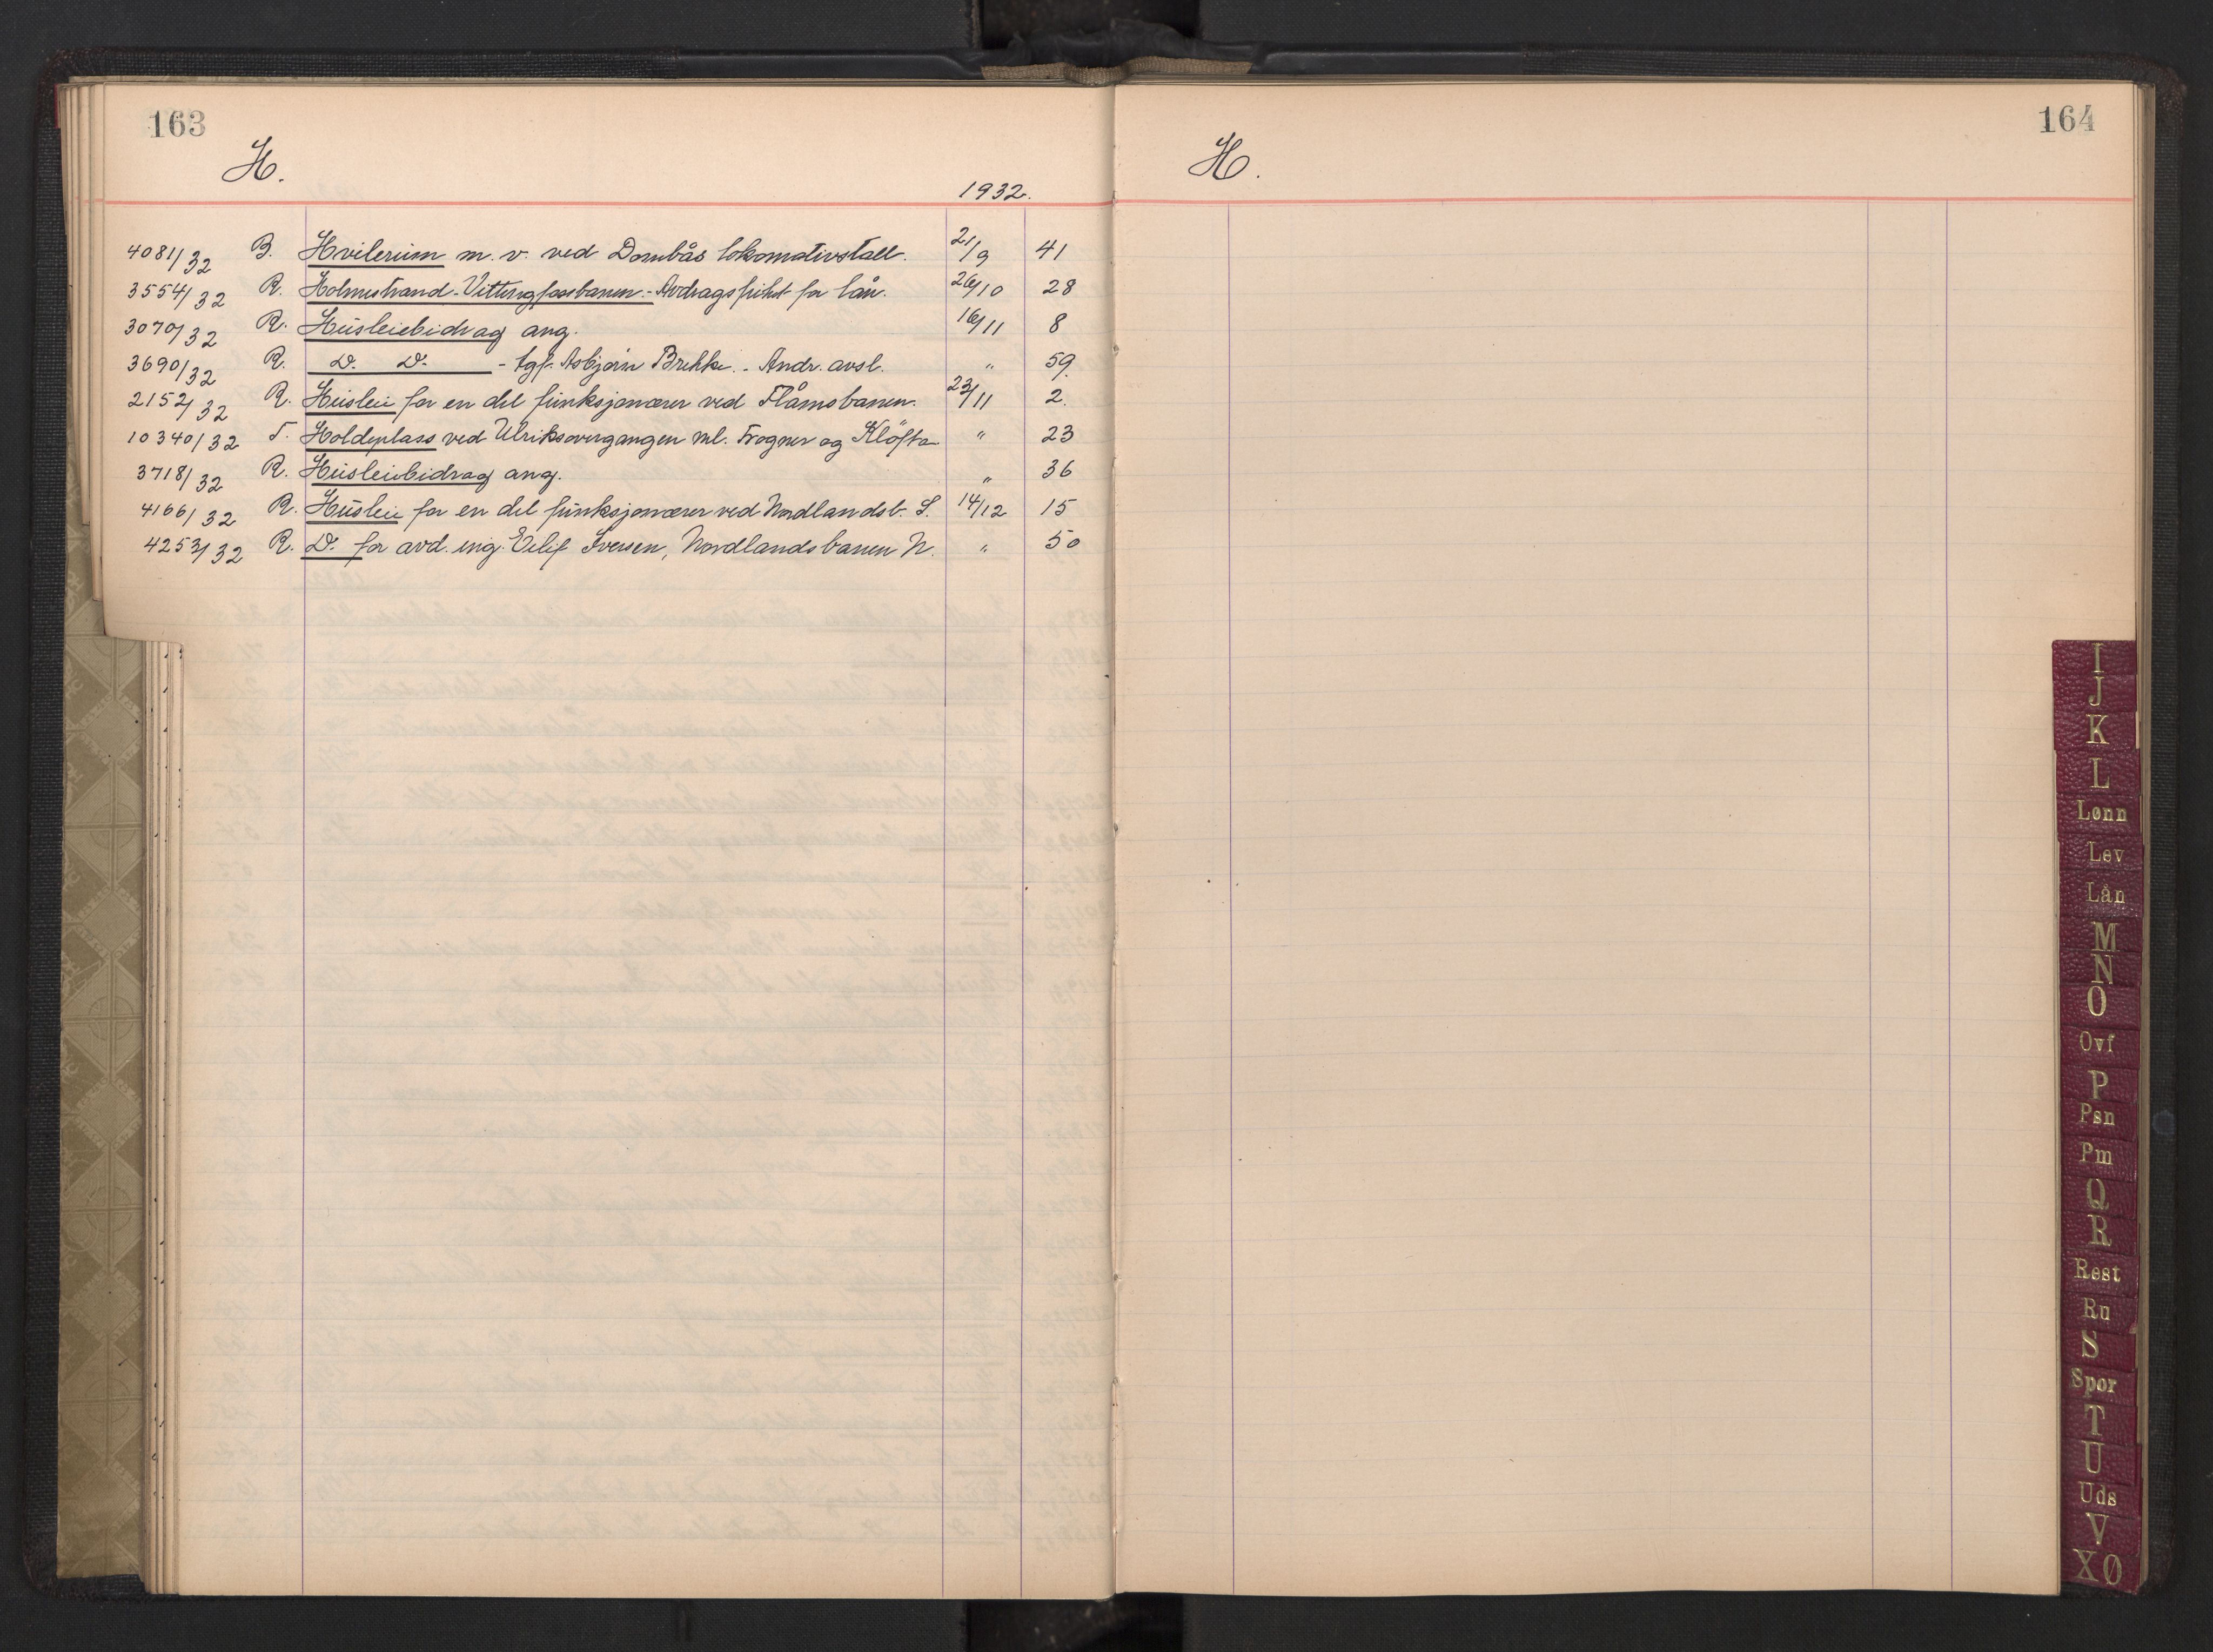 163
H.
1932.
4081/32 B. Hvilerum m. v. ved Dombås lokomotivstall. 21/9 41
3554/32 R. Holmestrand-Vittingfossbanen.- Avdragsfrihet for lån. 26/10 28
3070/32 R. Husleiebidrag ang. 16/11 8
3690/32 R. D. D. - tgf. Asbjørn Brekke. - Andr. avsl. " 59.
2152/32 R. Husleie for en del funksjonærer ved Flåmsbanen. 23/11 2.
10340/32 T. Holdeplass ved Ulriksovergangen ml. Frogner og Kløfta " 23
3718/32 R. Husleiebidrag ang. " 36
4166/32 R. Husleie for en del funksjonærer ved Nordlandsb. S. 14/12 15
4253/32 R. D. for avd. ing. Eilif Iversen, Nordlandsbanen N. " 50
164
H.
I
J
K
L
Lønn
Lev
Lån
M
N
O
Ovf
P
Psn
Pm
Q
R
Rest
Ru
S
Spor
T
U
Uds
V
XØ